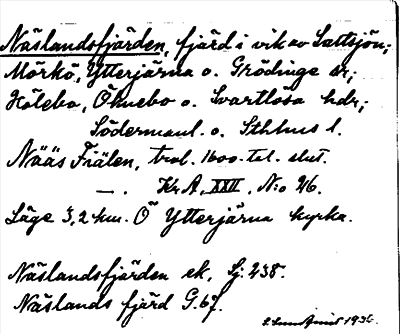 Näslandsfjärden, fjärd i vik av Saltsjön;
Mörkö, Ytterjärna o. Grödinge sr;
Hölebo, Öknebo o. Svartlösa hdr;
Södermanl. o. Sthlms l.
Nääs Fiälen, trol. 1600-tal. slut.
—. Kr. A, XXII, N:o 26.
Läge 3,2 km. Ö Ytterjärna kyrka.
Näslandsfjärden ek. Sj. 238.
Näslands fjärd G. 67.
1936.